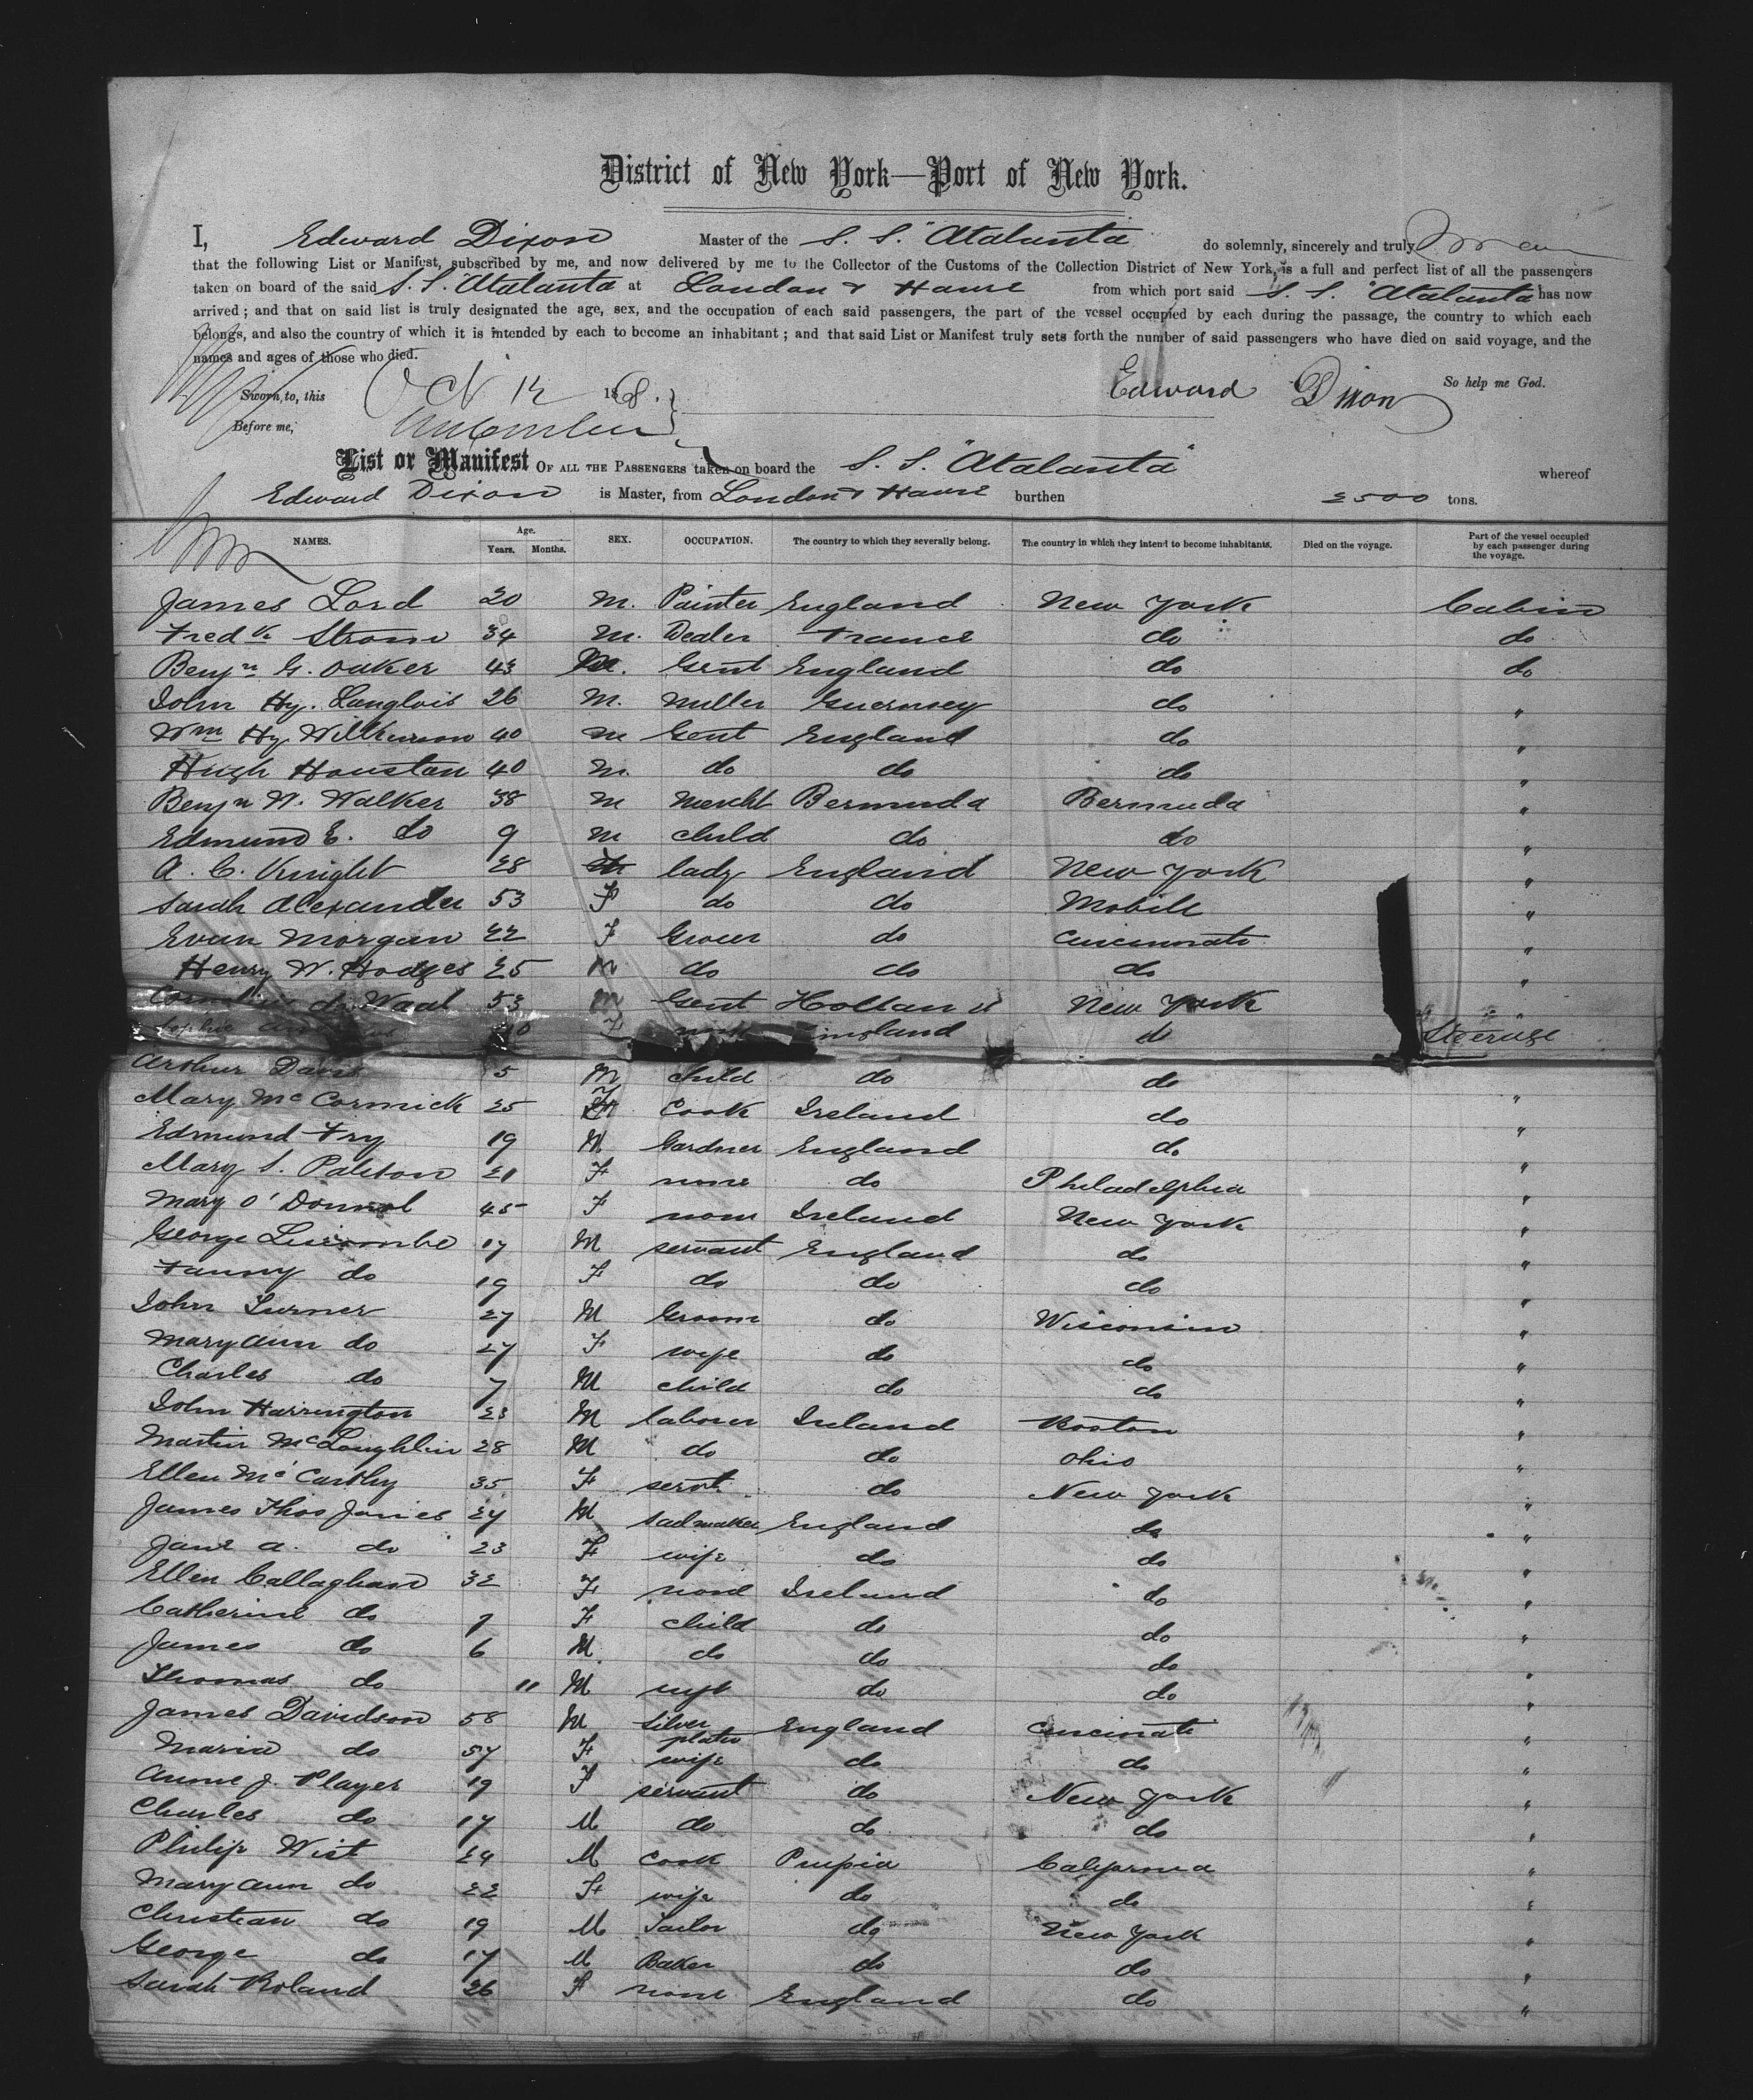 District of New York—Port of New York.
I, Edward Dixon Master of the S. S. "Atalanta do solemnly, sincerely and truly
that the following List or Manifest, subscribed by me, and now delivered by me to the Collector of the Customs of the Collection District of New York, is a full and perfect list of all the passengers
taken on board of the said S. S. "Atalanta at London & Havre from which port said S. S. "Atalanta has now
arrived; and that on said list is truly designated the age, sex, and the occupation of each said passengers, the part of the vessel occupied by each during the passage, the country to which each
belongs, and also the country of which it is intended by each to become an inhabitant; and that said List or Manifest truly sets forth the number of said passengers who have died on said voyage, and the
names and ages of those who died.
Sworn to, this Oct 12 1868. Edward Dixon So help me God.
Before me,
List or Manifest OF ALL THE PASSENGERS taken on board the S. S. "Atalanta" whereof
Edward Dixon is Master, from London & Havre burthen 2500 tons.
NAMES. Age. Years. Months. SEX. OCCUPATION. The country to which they severally belong. The country in which they intend to become inhabitants. Died on the voyage. Part of the vessel occupied by each passenger during the voyage.
James Lord 20 M. Painter England New York Cabin
Fredk Strom 34 M. Dealer France do do
Benjn G. Oaker 43 M. Gent England do do
John Hy. Langlois 26 M. Miller Guernsey do "
Wm Hy Wilkinson 40 M Gent England do "
Hugh Houstan 40 M. do do do "
Benjn W. Walker 38 M Mercht Bermuda Bermuda "
Edmund E. do 9 M child do do "
A. C. Knight 28 lady England New York "
Sarah Alexander 53 F do do Mobile "
Evan Morgan 22 F Grocer do Cincinnati "
Henry W. Hodges 25 M do do do "
de Waal 53 M Gent Holland New York "
Sophie F England do Steerage
Arthur Davis 5 M child do do "
Mary McCormick 25 F Cook Ireland do "
Edmund Fry 19 M. Gardner England do "
Mary S. Palston 21 F none do Philadelphia "
Mary O'Donnol 45 F none Ireland New York "
George Luscombe 17 M servant England do "
Fanny do 19 F do do do "
John Turner 27 M Groom do Wisconsin "
Mary Ann do 27 F wife do do "
Charles do 7 M child do do "
John Harrington 23 M laborer Ireland Boston "
Martin McLoughlin 28 M do do Ohio "
Ellen McCarthy 35 F servt. do New York "
James Thos Jones 24 M Sailmaker England do "
Jane A. do 23 F wife do do "
Ellen Callaghan 32 F none Ireland do "
Catherine do 7 F child do do "
James do 6 M. do do do "
Thomas do 11 M inft do do "
James Davidson 58 M Silver plater England Cincinati "
Maria do 57 F wife do do "
Annie J. Player 19 F servant do New York "
Charles do 17 M do do do "
Philip Wist 24 M Cook Prussia California "
Mary Ann do 22 F wife do do "
Christian do 19 M Tailor do New York "
George do 17 M Baker do do "
Sarah Roland 26 F none England do "